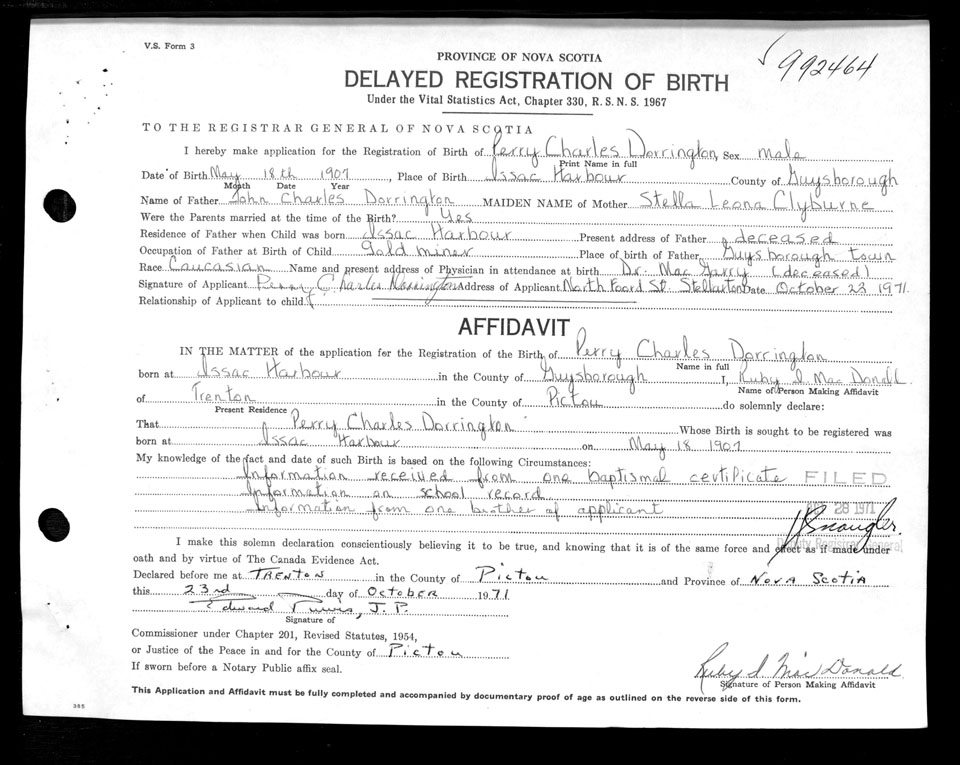 V.S. Form 3
992464
PROVINCE OF NOVA SCOTIA
DELAYED REGISTRATION OF BIRTH
Under the Vital Statistics Act, Chapter 330, R. S. N. S. 1967
TO THE REGISTRAR GENERAL OF NOVA SCOTIA
I hereby make application for the Registration of Birth of Perry Charles Dorrington, Sex male
Print Name in full
Date of Birth May 18th 1907, Place of Birth Issac Harbour County of Guysborough
Month Date Year
Name of Father John Charles Dorrington MAIDEN NAME of Mother Stella Leona Clyburne
Were the Parents married at the time of the Birth? Yes
Residence of Father when Child was born Issac Harbour Present address of Father deceased
Occupation of Father at Birth of Child gold miner Place of birth of Father Guysborough town
Race Caucasian Name and present address of Physician in attendance at birth Dr. Mac Garry (deceased)
Signature of Applicant Perry Charles Dorrington Address of Applicant North Foord St. Stellarton Date October 23 1971.
Relationship of Applicant to child
AFFIDAVIT
IN THE MATTER of the application for the Registration of the Birth of Perry Charles Dorrington
Name in full
born at Issac Harbour in the County of Guysborough I, Ruby I MacDonald
Name of Person Making Affidavit
of Trenton in the County of Pictou do solemnly declare:
Present Residence
That Perry Charles Dorrington Whose Birth is sought to be registered was
born at Issac Harbour on May 18 1907
My knowledge of the fact and date of such Birth is based on the following Circumstances:
Information received from one baptismal certificate FILED
Information on school record
Information from one brother of applicant 28 1971
Deputy Registrar General
I make this solemn declaration conscientiously believing it to be true, and knowing that it is of the same force and effect as if made under
oath and by virtue of The Canada Evidence Act.
Declared before me at TRENTON in the County of Pictou and Province of Nova Scotia
this 23rd day of October 1971.
Edward J. P.
Signature of
Commissioner under Chapter 201, Revised Statutes, 1954,
or Justice of the Peace in and for the County of Pictou
If sworn before a Notary Public affix seal.
Ruby I. MacDonald
Signature of Person Making Affidavit
This Application and Affidavit must be fully completed and accompanied by documentary proof of age as outlined on the reverse side of this form.
385